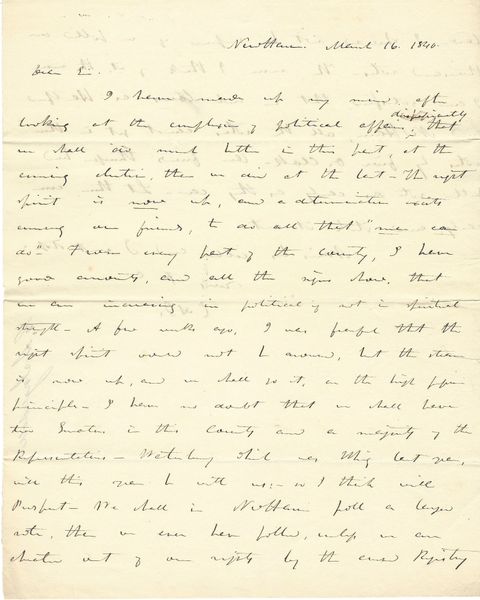 New Haven March 16. 1840.
Dear Sir.
I have made up my mind, after
looking at the complexion of political affairs, dispassionately that
we shall do much better in this part at the
coming election, than we did at the last – The right
spirit is now up, and a determination exists
among our friends, to do all that "men can
do" – From every part of the County, I have
good accounts, and all the signs show, that
we are increasing in political if not in spiritual
strength – A few weeks ago, I was fearful that the
right spirit would not be aroused, but the steam
is now up, and we shall go it, on the high pressure
principles – I have no doubt that we shall have
two Senators in this County and a majority of the
Representatives – Waterbury which was Whig last year,
will this year be with us; – so I think will
Prospect – We shall in New Haven poll a larger
vote, than we ever have polled, unless we are
cheated out of our rights by the cursed Registry